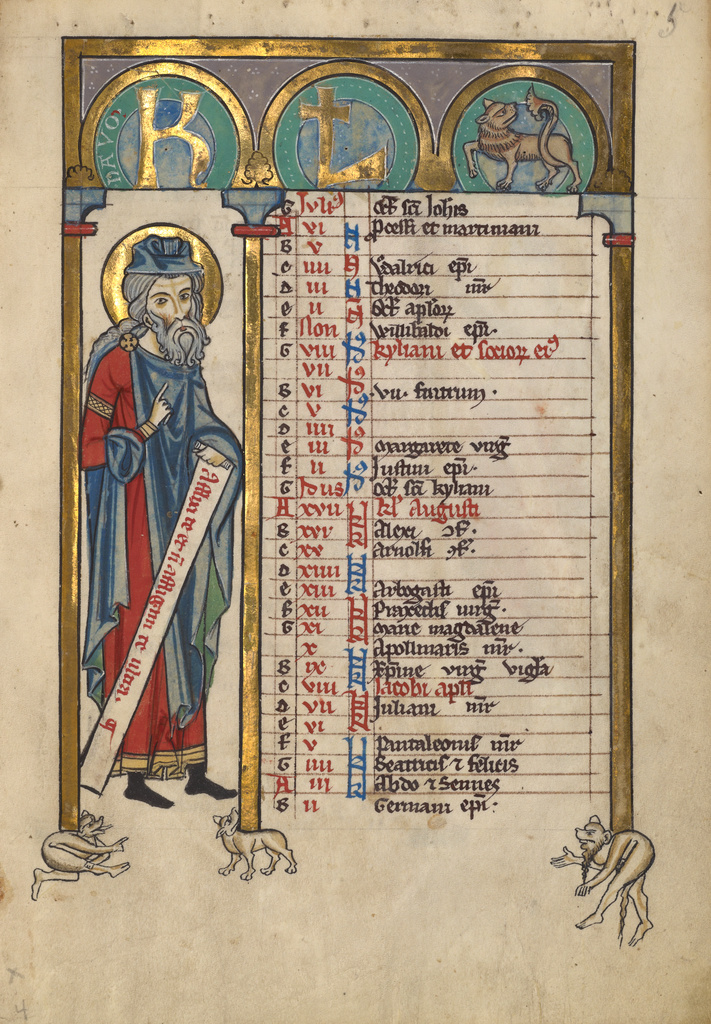 5
NAVO
K L
G Julius Oct sci Johis
A VI Pcessi et martiniani
B V
C IIII Vdalrici epi
D III Theodori mr
e II Oct aplor
f Non Willibaldi epi.
G VIII kyliani et socior ei9
VII
B VI VII. fratrum.
C V
D IIII
e III Margarete virg
f II Justini epi.
G Idus Oct sci kyliani
A XVII kl' Augusti
B XVI Alexi
C XV Arnolfi
D XIIII
e XIII Arbogasti epi
f XII Praxedis virg.
G XI Marie magdalene
X Apollinaris mr.
B IX Xpine virg vigla
C VIII Jacobi apli
D VII Juliani mr
e VI
f V Pantaleonis mr
G IIII Beatricis 7 felicis
A III Abdo 7 Sennes
B II Germani epi.
Afflixi te et n affligam te ultra.
4